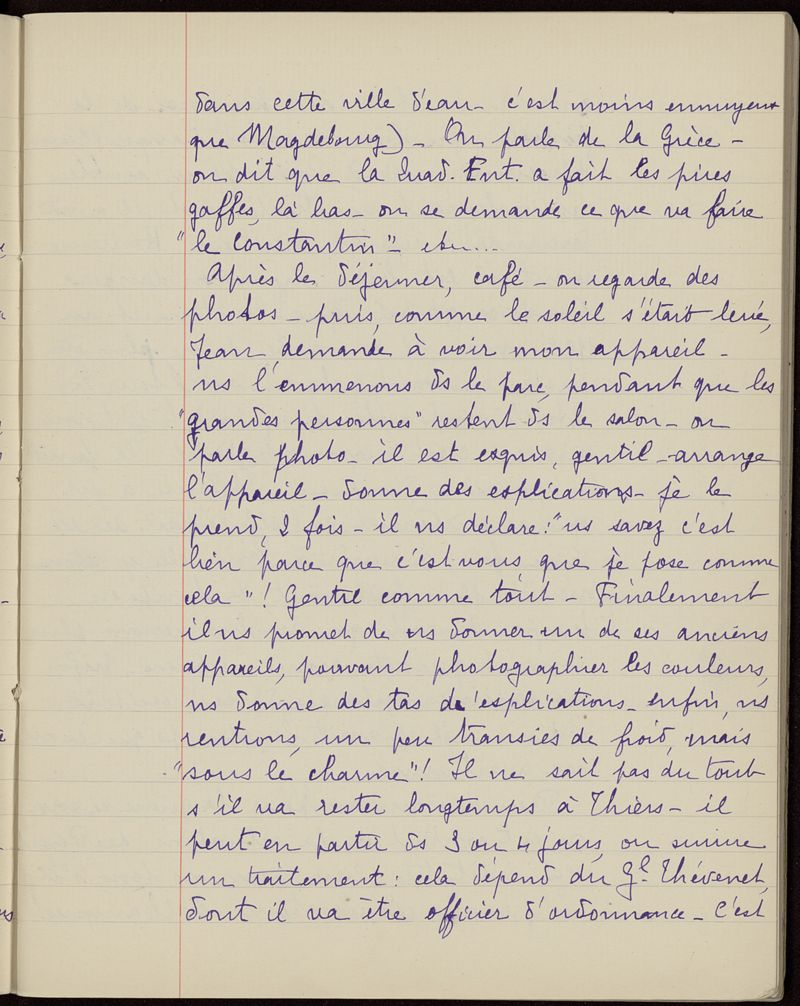 dans cette ville d'eau - c'est moins ennuyeux
que Magdebourg) - On parle de la Grèce -
on dit que la Quad. Ent. a fait les pires
gaffes, là bas - on se demande ce que va faire
"le Constantin" - etc...
Après le déjeuner, café - on regarde des
photos - puis, comme le soleil s'était levé,
Jean demande à voir mon appareil -
ns l'emmenons ds le parc, pendant que les
"grandes personnes" restent ds le salon - on
parle photo - il est exquis, gentil - arrange
l'appareil - donne des explications - je le
prend, 2 fois - il ns déclare : "vs savez c'est
bien parce que c'est vous que je pose comme
cela" ! Gentil comme tout - Finalement
il ns promet de ns donner un de ses anciens
appareils, pouvant photographier les couleurs,
ns donne des tas d'explications - enfin, ns
rentrons, un peu transies de froid, mais
"sous le charme" ! Il ne sait pas du tout
s'il va rester longtemps à Thiers - il
peut en partir ds 3 ou 4 jours, ou suivre
un traitement : cela dépend du Gl. Thévenet,
dont il va être officier d'ordonnance - C'est